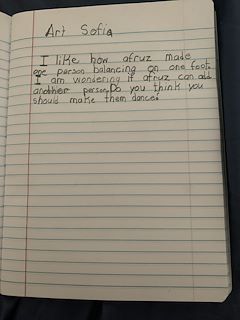 Art Sofia
I like how afruz made
one person balancing on one foot.
I am wondering if afruz can add
another person. Do you think you
should make them dance?